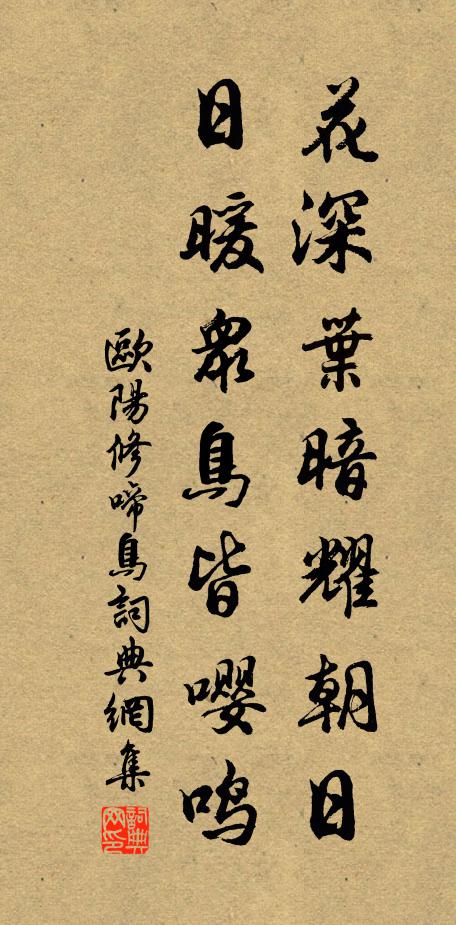 花深葉暗耀朝日
日暖眾鳥皆嚶鳴
歐陽修啼鳥詞典網集
詞典網印